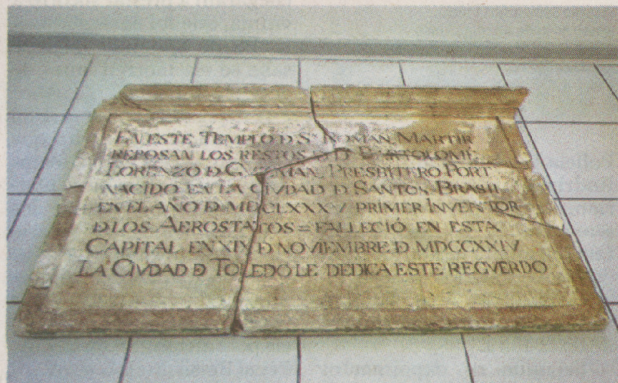 EN ESTE TEMPLO D Sⁿ ROMÁN MARTIR
REPOSAN LOS RESTOS D D BARTOLOMÉ
LORENZO D GVZMAN, PRESBITERO PORT
NACIDO EN LA CIVDAD D SANTOS-BRASIL
EN EL AÑO D MDCLXXXV PRIMER INVENTOR
D LOS AEROSTATOS = FALLECIÓ EN ESTA
CAPITAL EN XIX D NOVIEMBRE D MDCCXXIV
LA CIVDAD D TOLEDO LE DEDICA ESTE RECVERDO